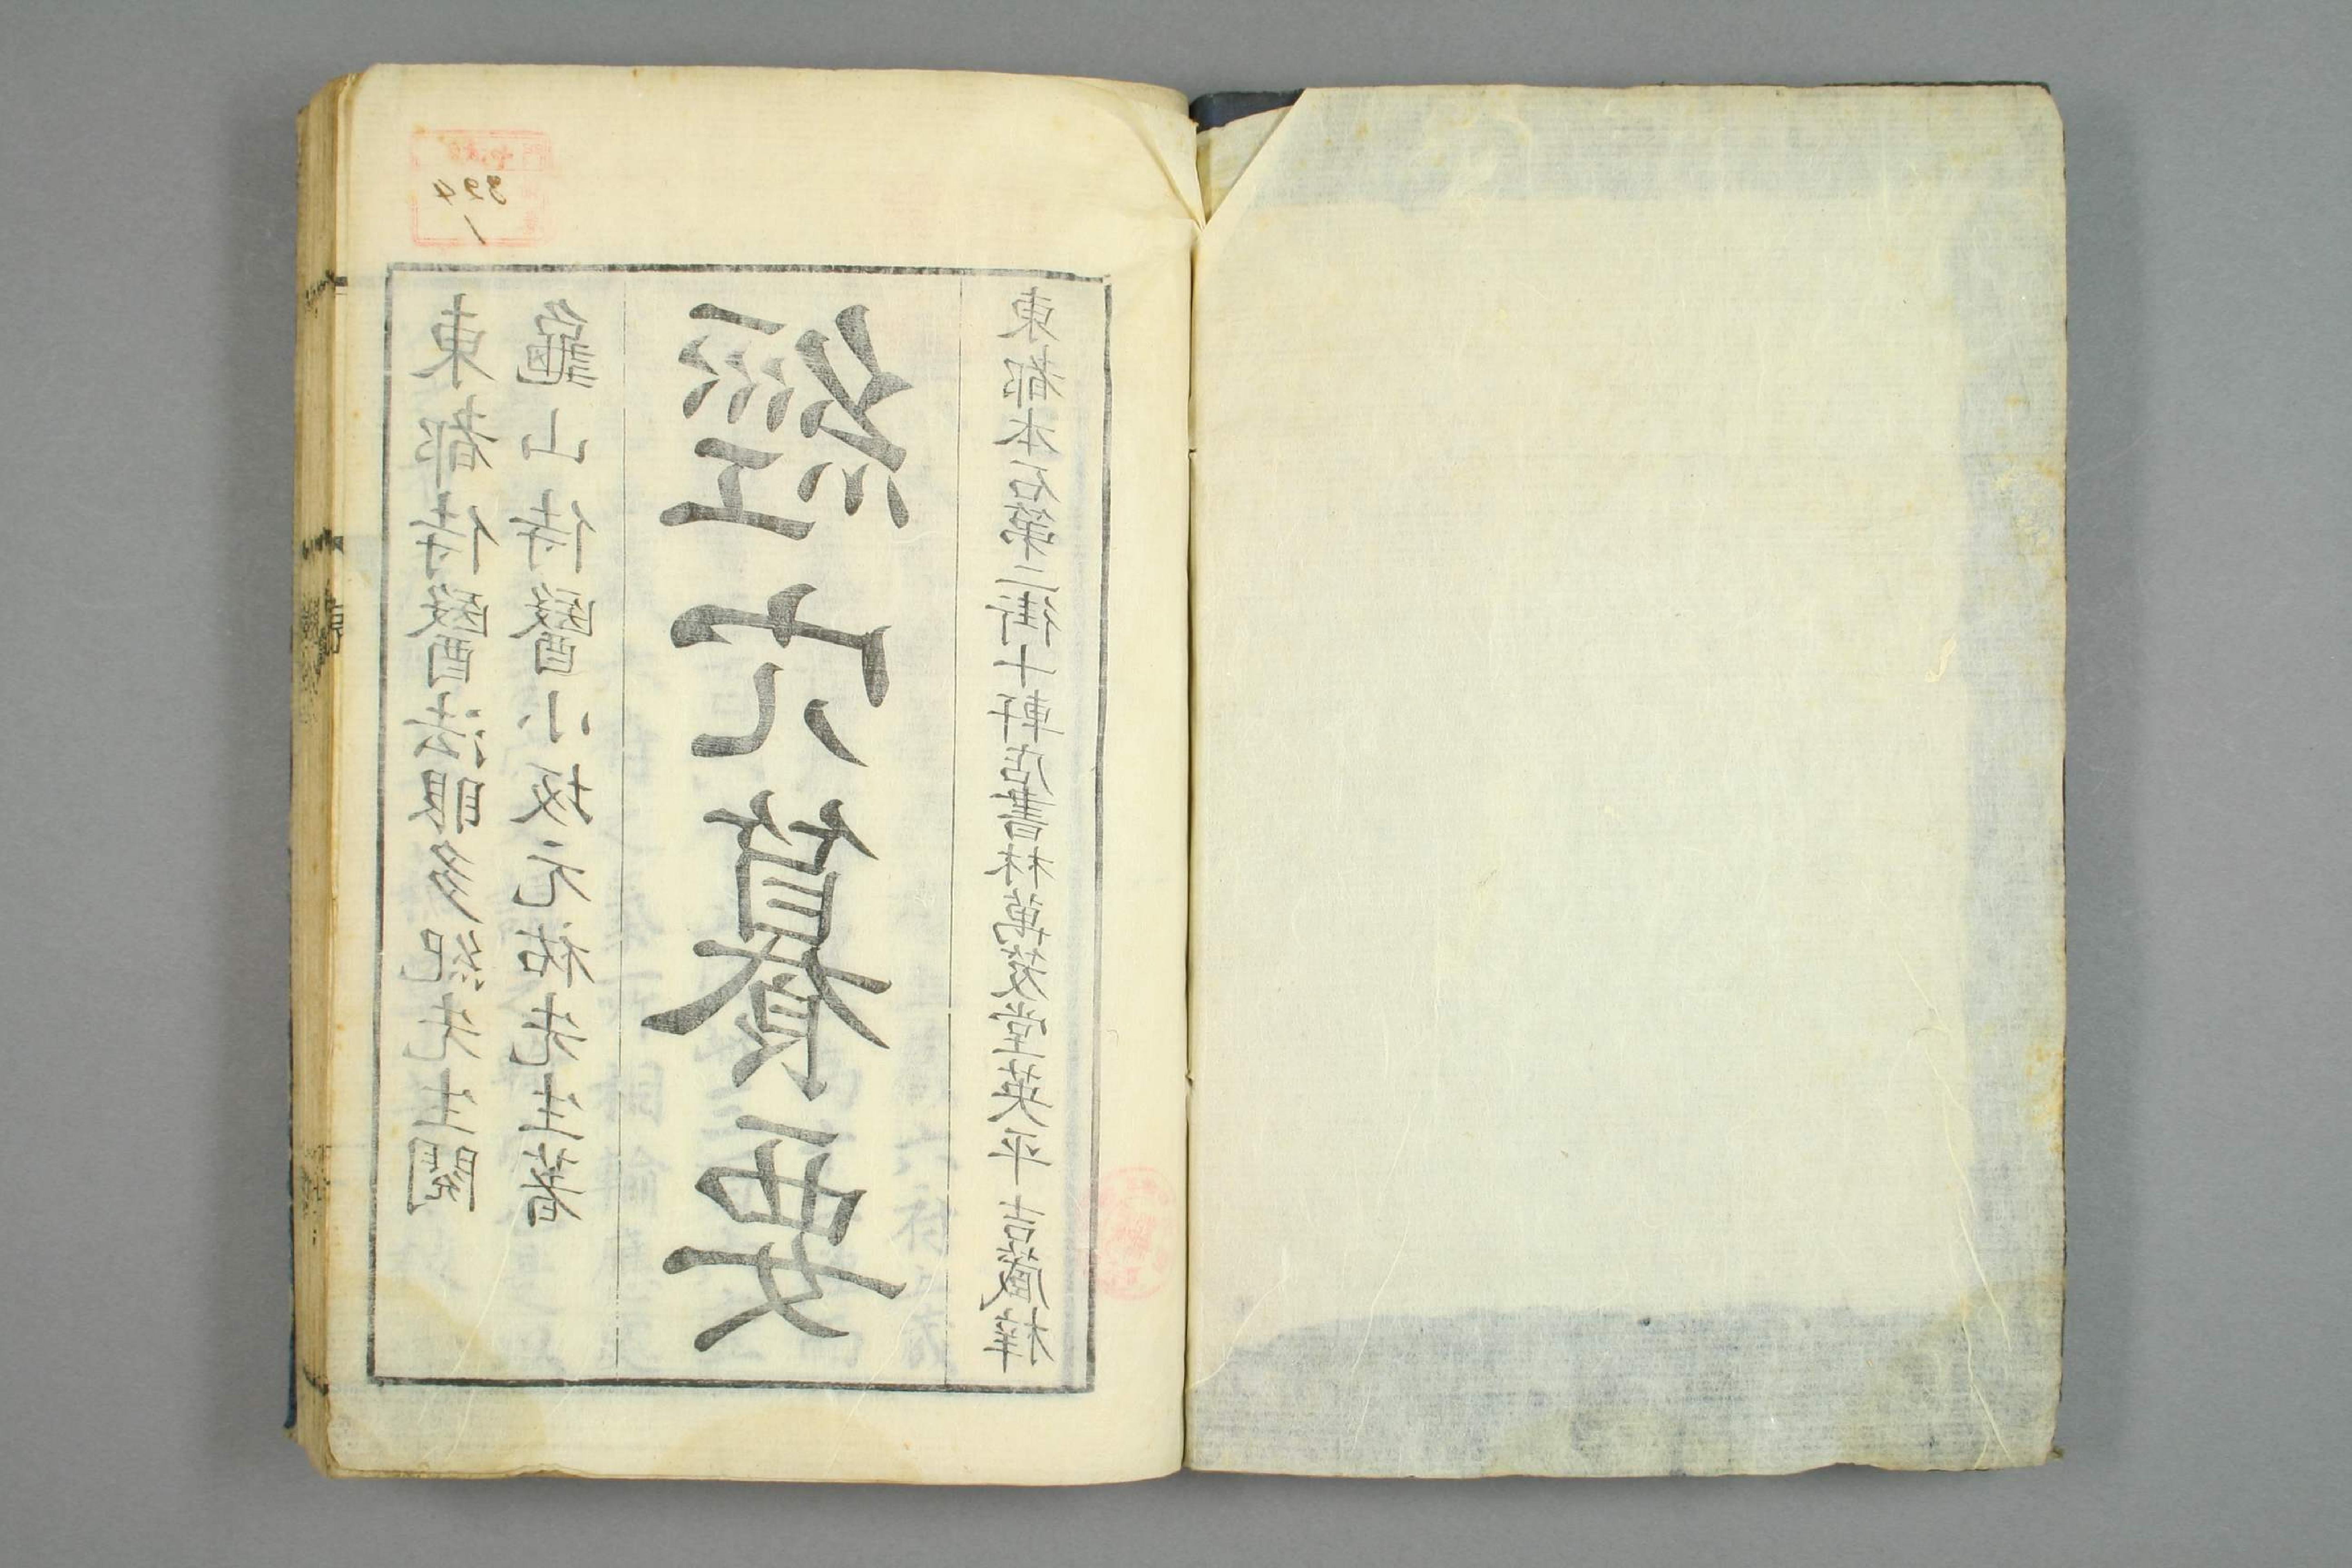 東都侍醫法眼多紀先生閲
龜山侍醫小坂元祐先生著
經穴纂要
東都本石第二街十軒店書林萬笈堂英平吉藏梓